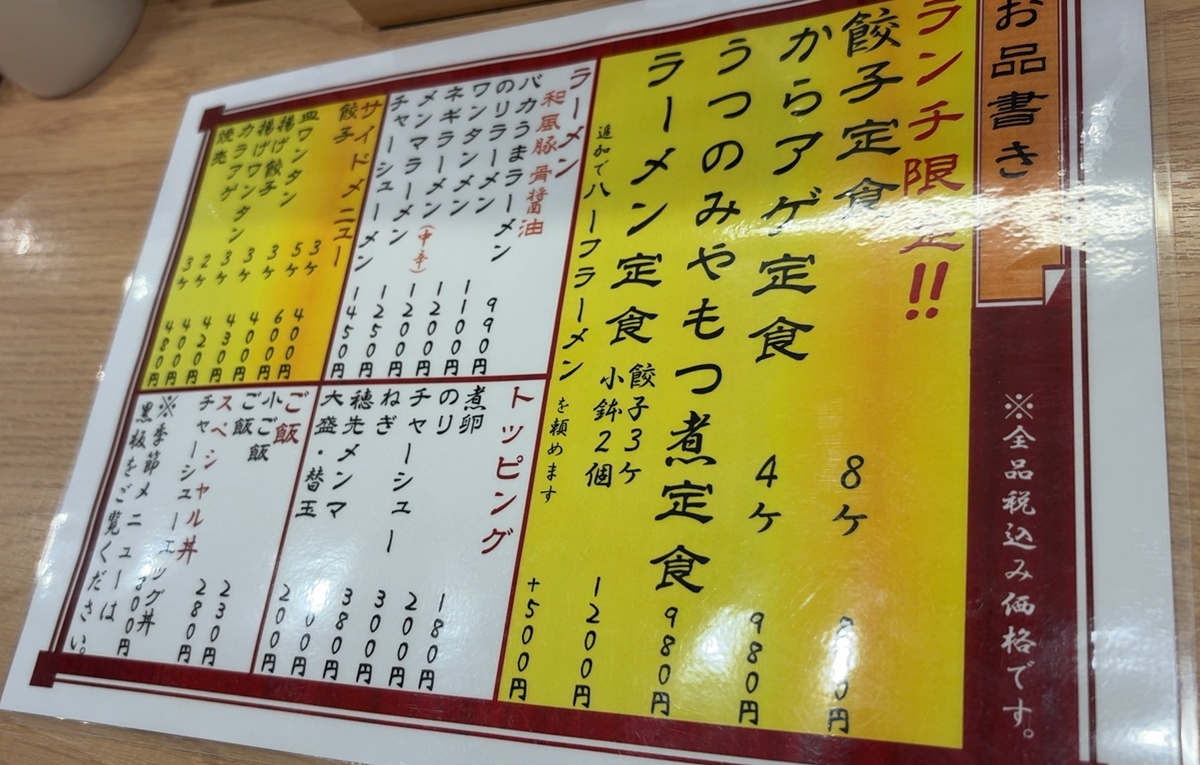 お品書き
※全品税込み価格です。
ランチ限定!!
餃子定食 8ケ 円
からアゲ定食 4ケ 980円
うつのみやもつ煮定食 980円
ラーメン定食 餃子3ケ 小鉢2個 1200円
追加でハーフラーメンを頼めます +500円
ラーメン
和風豚骨醤油
バカうまラーメン 990円
のりラーメン 1100円
ワンタンメン 1200円
ネギラーメン(中辛) 1200円
メンマラーメン 1250円
チャーシューメン 1450円
サイドメニュー
餃子 3ケ 400円
皿ワンタン 5ケ 600円
揚げ餃子 3ケ 400円
揚げワンタン 3ケ 430円
カラアゲ 3ケ 420円
焼売 2ケ 400円
3ケ 480円
トッピング
煮卵 180円
のり 200円
チャーシュー 300円
ねぎ 380円
穂先メンマ 00円
大盛・替玉 200円
ご飯
小ご飯 230円
ご飯 280円
スペシャル丼
チャーシューエッグ丼 300円
※季節メニューは
黒板をご覧ください。